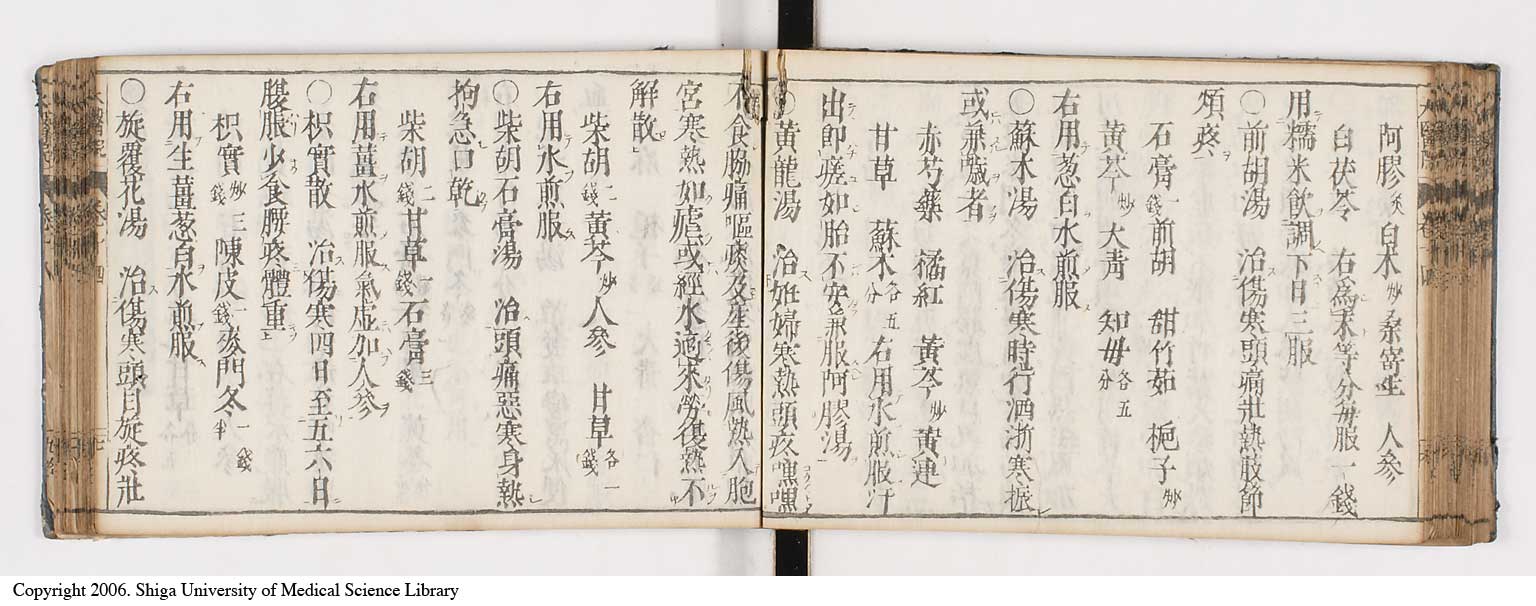 阿膠炙 白朮炒 桑寄生 人參
白茯苓 右爲末等分每服一錢
用糯米飲調下日三服
〇前胡湯 治傷寒頭痛壯熱肢節
煩疼
石膏一錢 前胡 甜竹茹 梔子炒
黃芩炒 大靑 知毋各五分
右用葱白水煎服
〇蘇木湯 治傷寒時行洒淅寒振
或兼喘者
赤芍藥 橘紅 黃芩炒 黃連
甘草 蘇木各五分 右用水煎服汗
出即瘥如胎不安兼服阿膠湯
〇黃龍湯 治妊婦寒熱頭疼嘿嘿
不食脇痛嘔痰及產後傷風熱入胞
宮寒熱如瘧或經水適來勞復熱不
解散
柴胡二錢 黃芩炒 人參 甘草各一錢
右用水煎服
〇柴胡石膏湯 治頭痛惡寒身熱
拘急口乾
柴胡二錢 甘草一錢 石膏三錢
右用薑水煎服氣虛加人參
〇枳實散 治傷寒四日至五六日
腹脹少食腰疼體重
枳實炒三錢 陳皮一錢 麥門冬一錢半
右用生薑葱白水煎服
〇旋覆花湯 治傷寒頭目旋疼壯
Copyright 2006. Shiga University of Medical Science Library